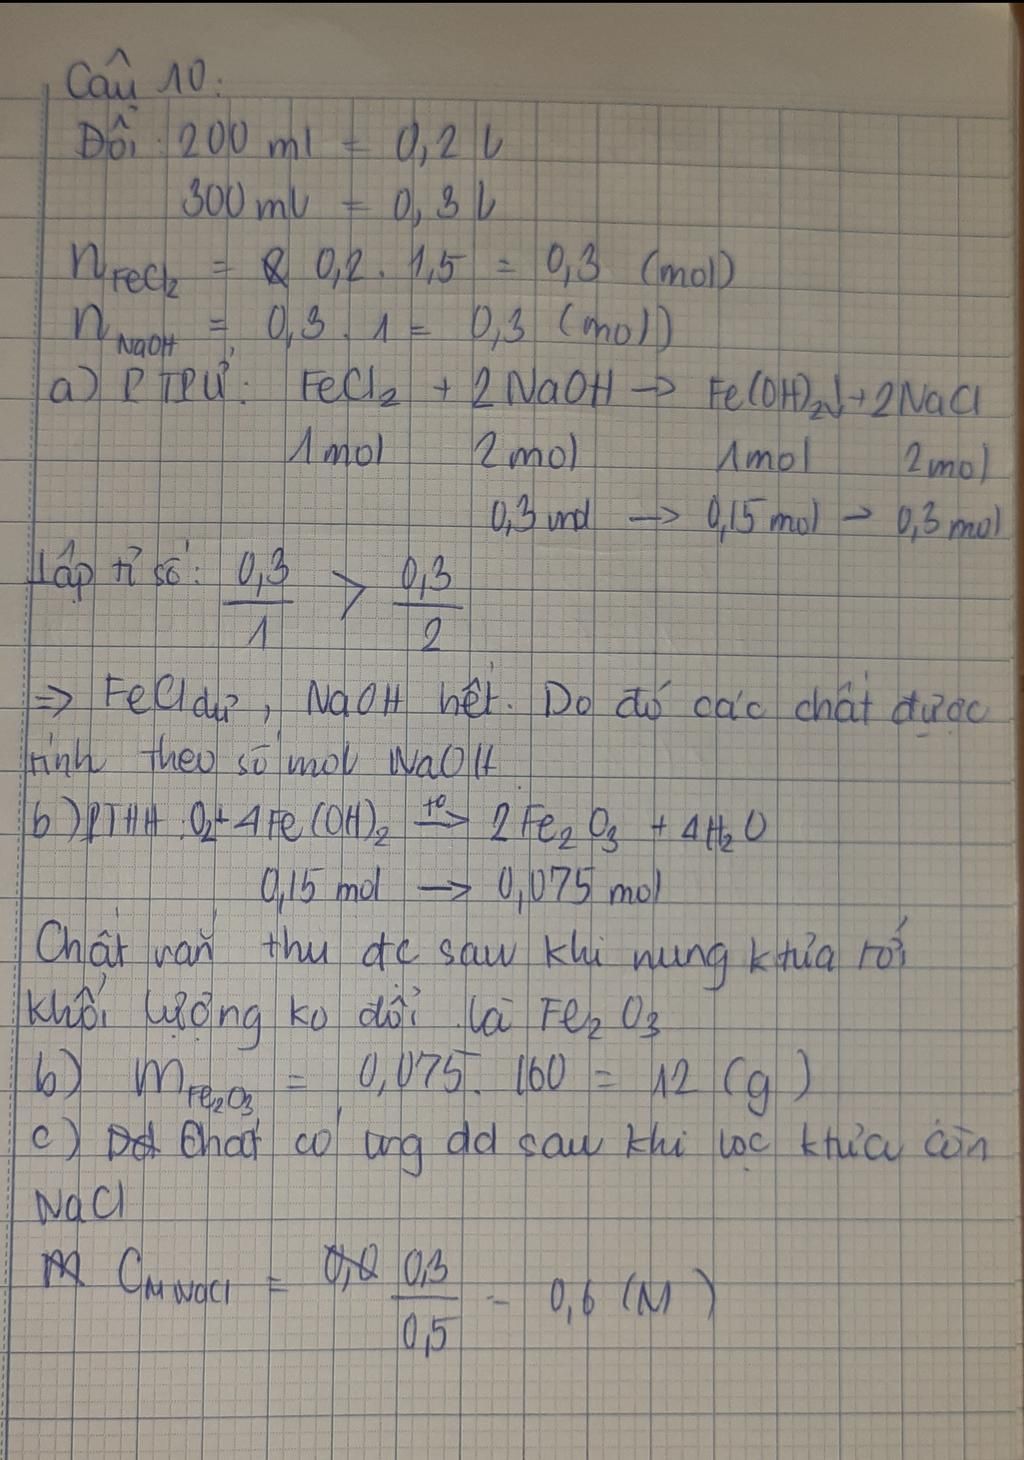 Câu 10:
Đổi: 200 ml = 0,2 l
300 ml = 0,3 l
nFeCl₂ = 0,2 . 1,5 = 0,3 (mol)
nNaOH = 0,3 . 1 = 0,3 (mol)
a) PTPƯ: FeCl₂ + 2NaOH → Fe(OH)₂↓ + 2NaCl
1mol 2mol 1mol 2mol
0,3 mol → 0,15 mol → 0,3 mol
Lập tỉ số: 0,3/1 > 0,3/2
⇒ FeCl dư, NaOH hết. Do đó các chất được
tính theo số mol NaOH
b) PTHH: O₂ + 4Fe(OH)₂ t°→ 2Fe₂O₃ + 4H₂O
0,15 mol → 0,075 mol
Chất rắn thu đc sau khi nung ktủa tới
khối lượng ko đổi là Fe₂O₃
b) mFe₂O₃ = 0,075 . 160 = 12 (g)
c) Chất có trg dd sau khi lọc ktủa còn
NaCl
CM NaCl = 0,3/0,5 = 0,6 (M)